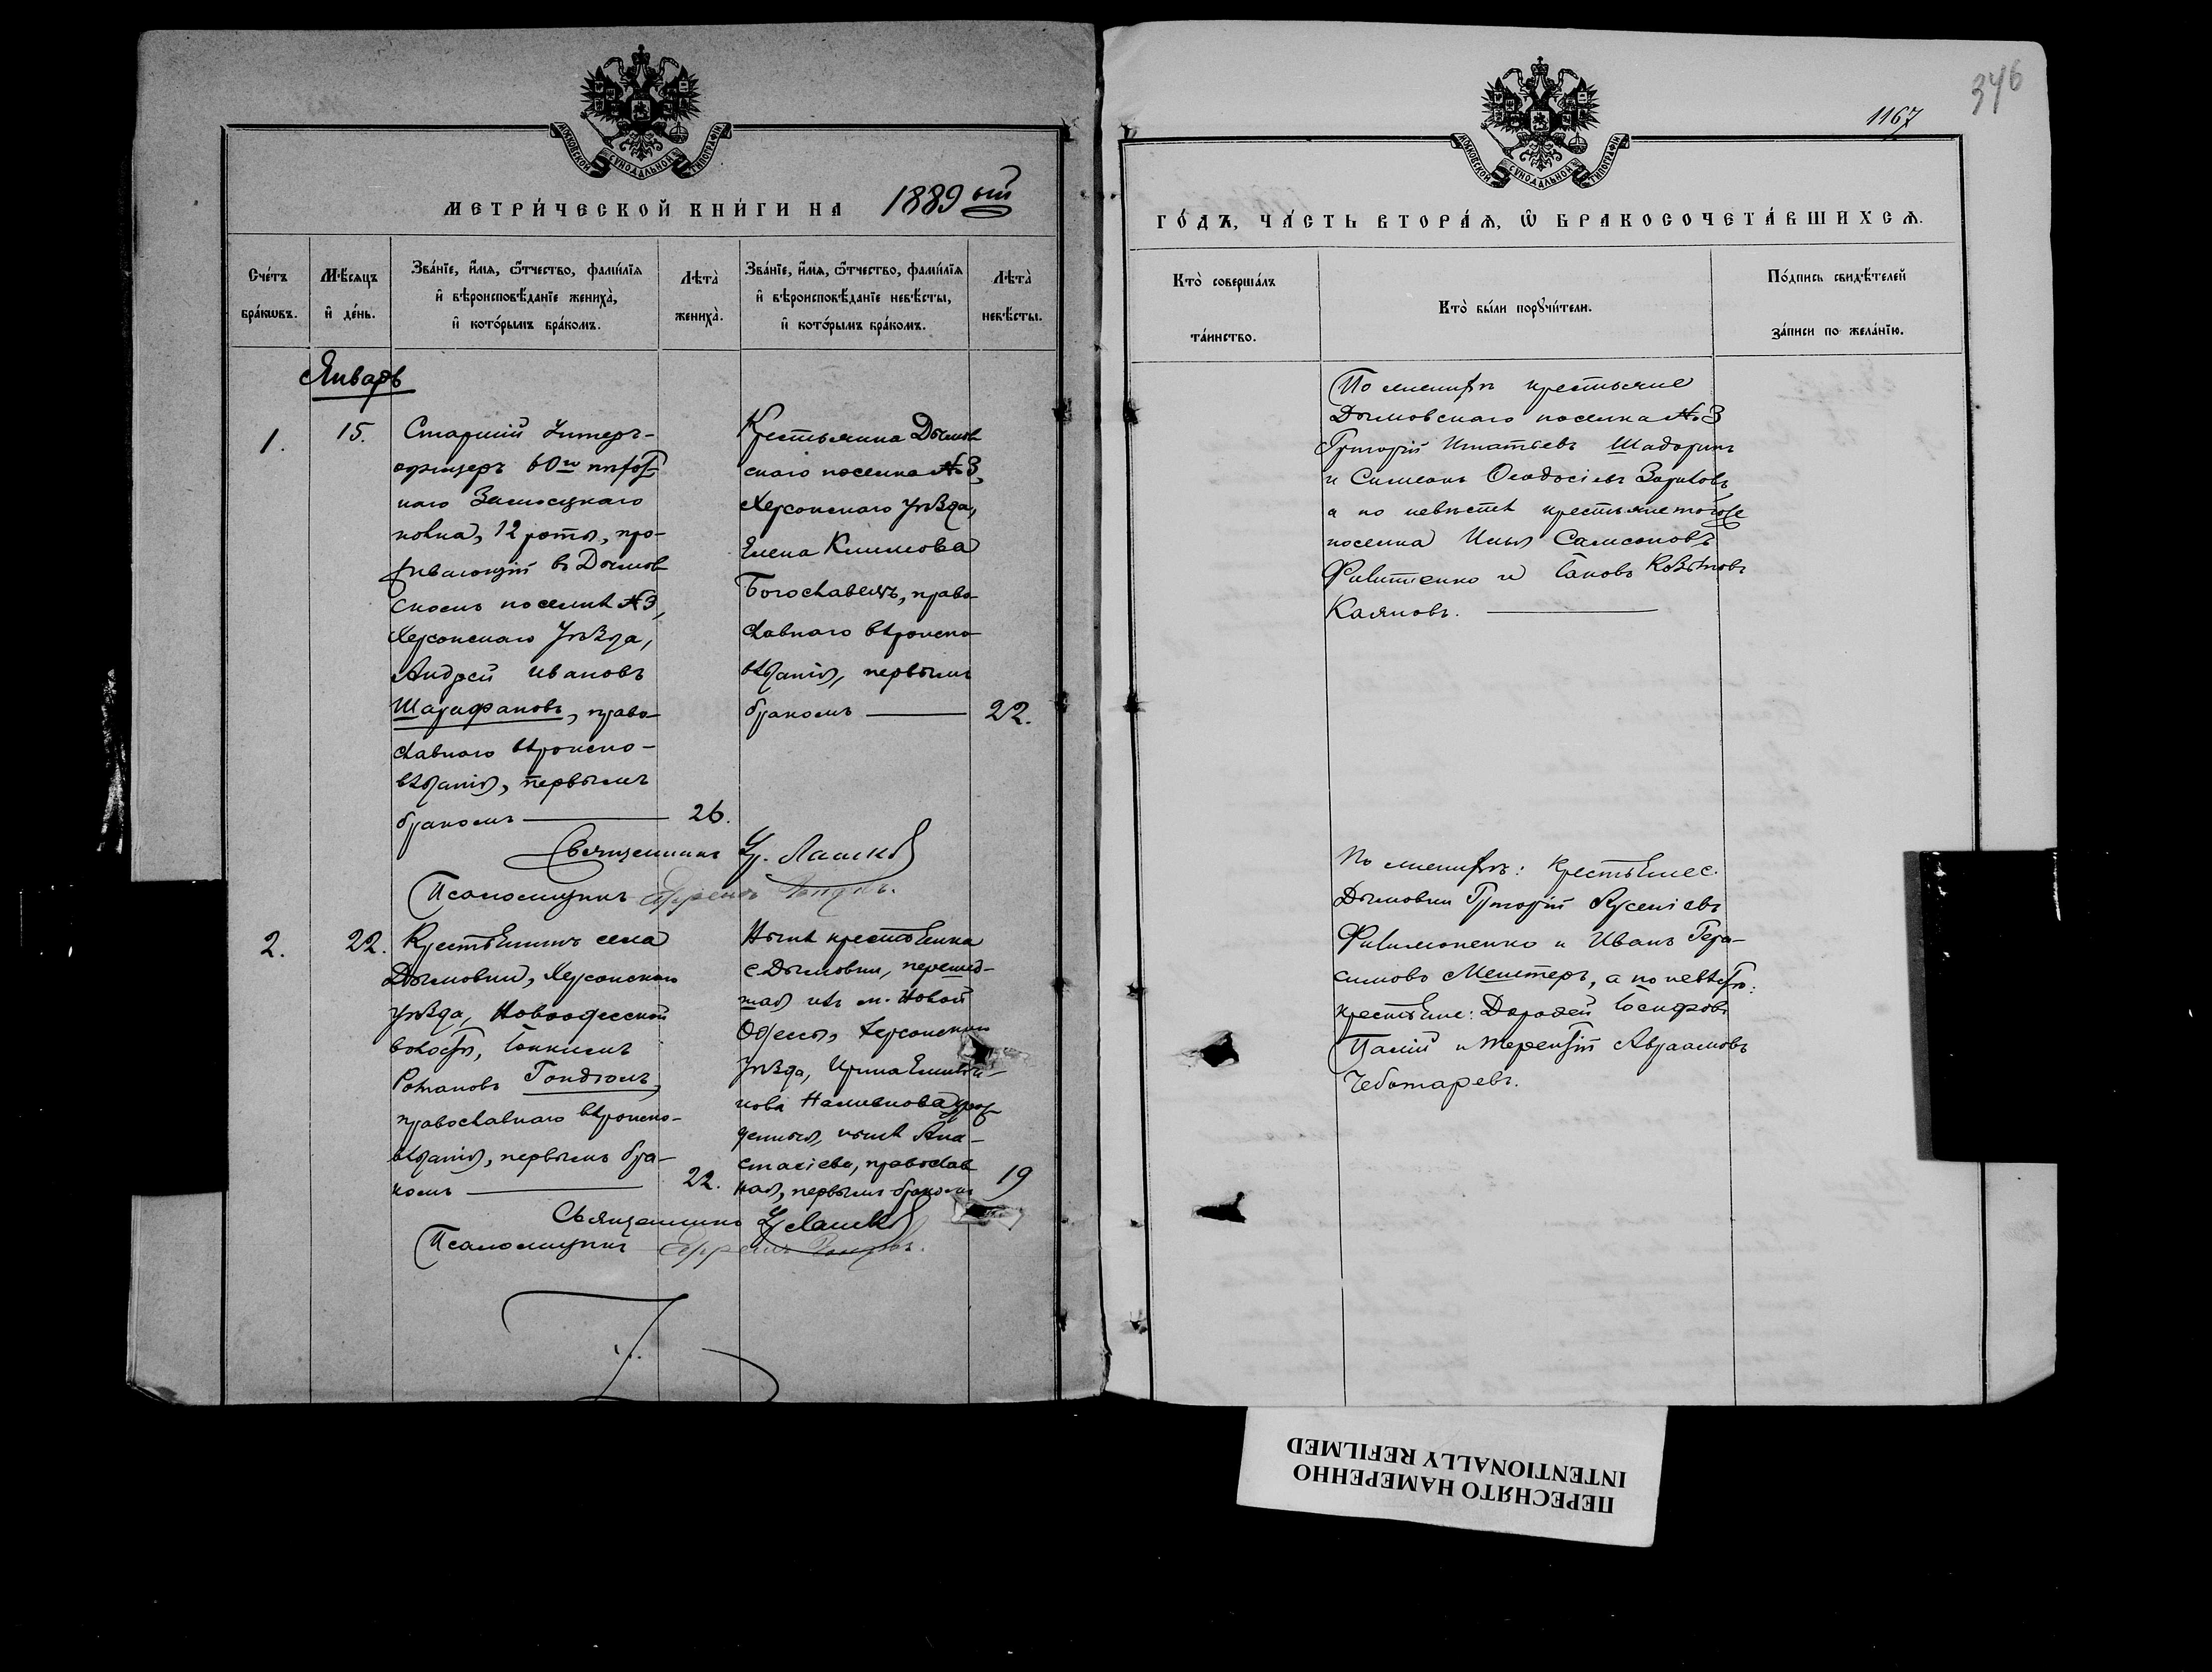 346
1167
МОСКОВСКОЙ СУНОДАЛЬНОЙ ТИПОГРАФІИ
МЕТРИ́ЧЕСКОЙ КНИ́ГИ НА 1889 ый
Сче́тъ бра́кωвъ.
Мѣ́сяцъ и҆ де́нь.
Зва́нїе, и҆́мя, ѻ҆́тчество, фами́лїя
и҆ вѣроисповѣ́данїе жениха̀,
и҆ кото́рымъ бра́комъ.
Лѣта̀ жениха̀.
Зва́нїе, и҆́мя, ѻ҆́тчество, фами́лїя
и҆ вѣроисповѣ́данїе невѣ́сты,
и҆ кото́рымъ бра́комъ.
Лѣта̀ невѣ́сты.
Январь
1.
15.
Старшій Унтеръ-
офицеръ 60го пѣхот-
наго Замосцкаго
полка, 12 роты, про-
живающій въ Дымов
скомъ поселкѣ №3,
Херсонскаго уѣзда,
Андрей Ивановъ
Шарафановъ, право-
славнаго вѣроиспо-
вѣданія, первымъ
бракомъ
26.
Крестьянка Дымов
скаго поселка №3,
Херсонскаго уѣзда,
Елена Климова
Богославецъ, право-
славнаго вѣроиспо-
вѣданія, первымъ
бракомъ
22.
Священникъ
Псаломщикъ Ефремъ
2.
22.
Крестьянинъ села
Дымовки, Херсонскаго
уѣзда, Новоодесской
волости, Іоакимъ
Романовъ Гондюлъ,
православнаго вѣроиспо-
вѣданія, первымъ бра-
комъ
22.
Нынѣ крестьянка
с. Дымовки, перешед-
шая изъ м. Новой
Одессы, Херсонскаго
уѣзда, Ирина
нынѣ Ана-
стасіева, православ
ная, первымъ бракомъ
19
Священникъ
Псаломщикъ Ефремъ
МОСКОВСКОЙ СУНОДАЛЬНОЙ ТИПОГРАФІИ
ГО́ДЪ, ЧА́СТЬ ВТОРА́Я, Ѡ БРАКОСОЧЕТА́ВШИХСЯ.
Кто̀ соверша́лъ
та́инство.
Кто̀ бы́ли порꙋчи́тели.
По́дпись свидѣ́телей
за́писи по жела́нїю.
По женихѣ крестьяне
Дымовскаго поселка №3
Григорій Игнатьевъ Шадоринъ
и Симеонъ Ѳеодосіевъ
а по невѣстѣ крестьяне того же
поселка Илья Самсоновъ
и Іаковъ
Каяновъ.
По женихѣ: крестьяне с.
Дымовки Григорій Арсеніевъ
Филимоненко и Иванъ Гера-
симовъ а по невѣстѣ:
крестьяне: Дорофей Іосифовъ
Палій и Терентій Авраамовъ
Чеботаревъ.
ПЕРЕСНЯТО НАМЕРЕННО
INTENTIONALLY REFILMED